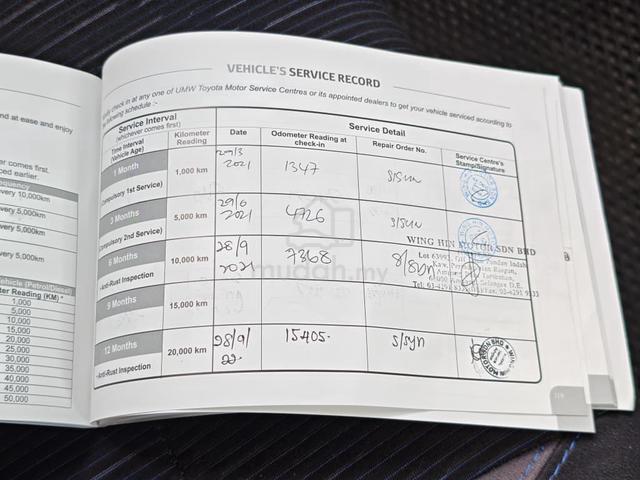 VEHICLE'S SERVICE RECORD
check in at any one of UMW Toyota Motor Service Centres or its appointed dealers to get your vehicle serviced according to
following schedule :-
Service Interval
(whichever comes first)
Service Detail
Time Interval
(Vehicle Age)
Kilometer
Reading
Date
Odometer Reading at
check-in
Repair Order No.
Service Centre's
Stamp/Signature
1 Month
(Compulsory 1st Service)
1,000 km
29/3
2021
1347
S/Syn
3 Months
(Compulsory 2nd Service)
5,000 km
29/6
2021
4726
S/Syn
6 Months
-Anti-Rust Inspection
10,000 km
28/9
2021
7368
S/Syn
WING HIN MOTOR SDN BHD
9 Months
15,000 km
12 Months
-Anti-Rust Inspection
20,000 km
28/9/
22
15405.
S/Syn
mudah.my
nd at ease and enjoy
er comes first.
ced earlier.
quency
very 10,000km
very 5,000km
very 5,000km
very 5,000km
Vehicle (Petrol/Diesel)
ter Reading (KM) *
1,000
5,000
10,000
15,000
20,000
25,000
30,000
35,000
40,000
45,000
50,000